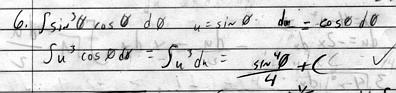 6. ∫sin³θ cos θ dθ u = sin θ du = cos θ dθ
∫u³ cos θ dθ = ∫u³ du = sin⁴θ/4 + C ✓